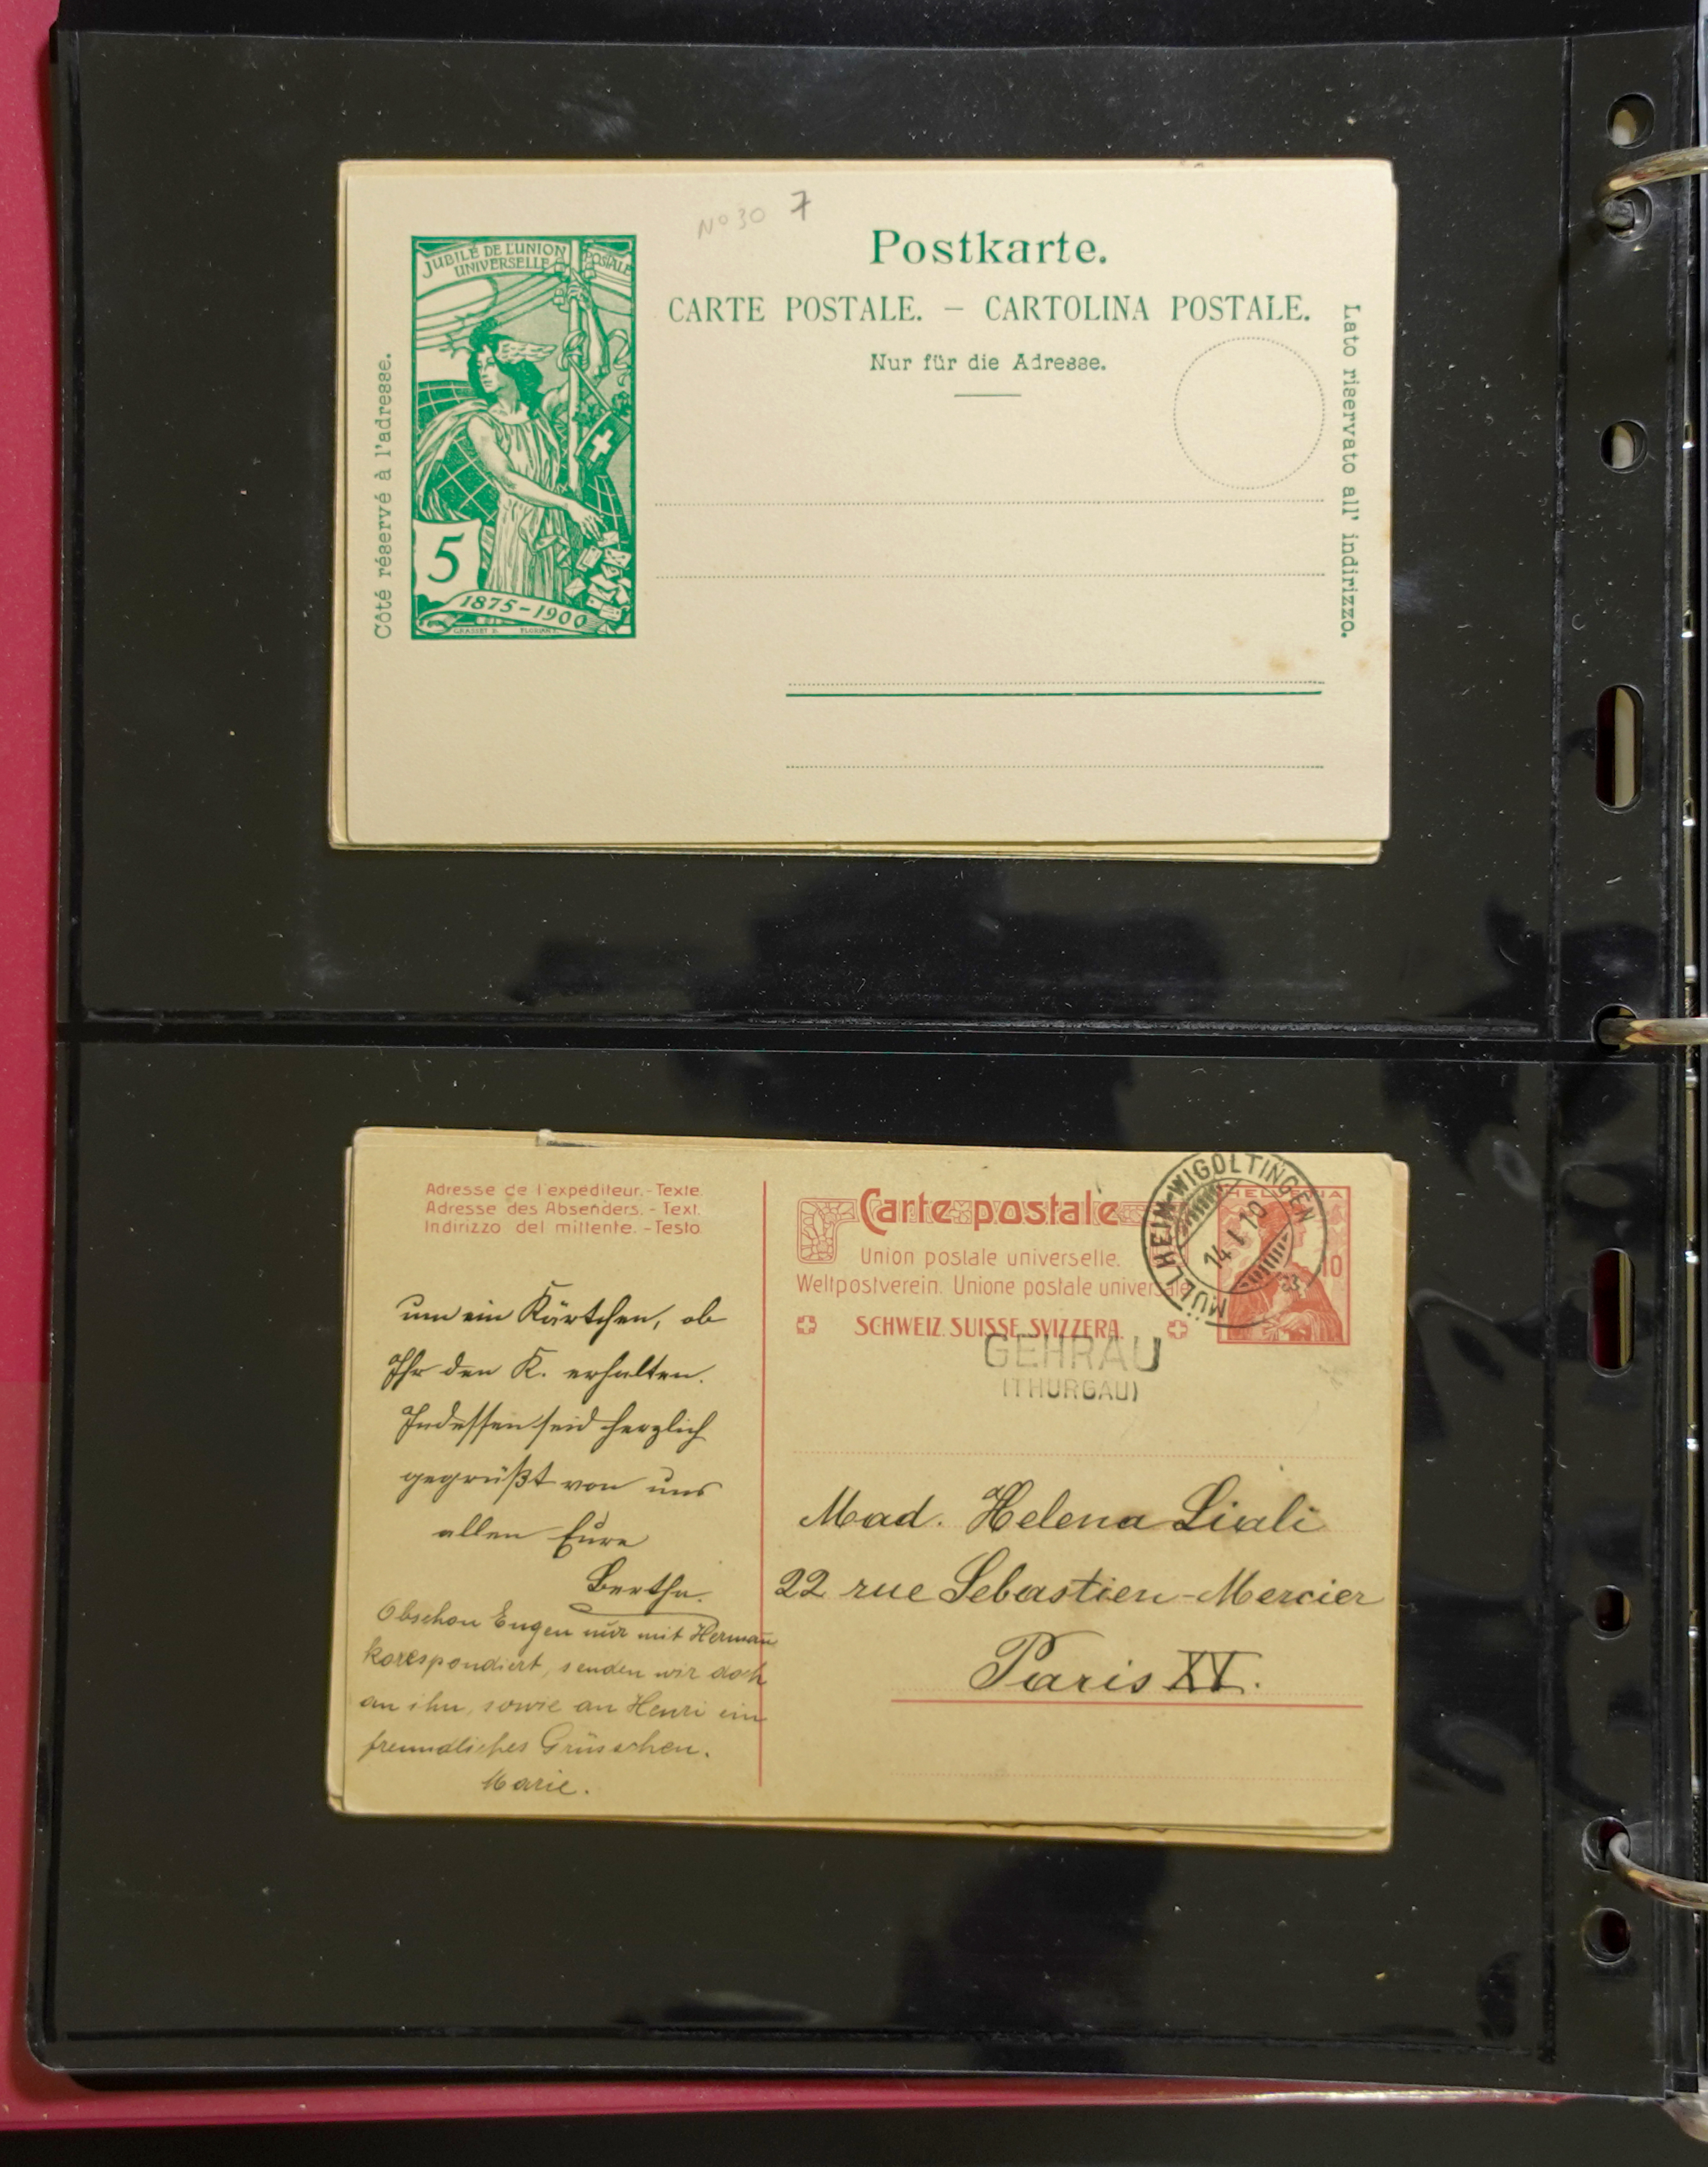 No 30 7
JUBILÉ DE L'UNION POSTALE
UNIVERSELLE
5
1875-1900
GRASSET D. FLORIAN S.
Postkarte.
CARTE POSTALE. — CARTOLINA POSTALE.
Nur für die Adresse.
Côté réservé à l'adresse.
Lato riservato all' indirizzo.
Adresse de l'expéditeur. - Texte.
Adresse des Absenders. - Text.
Indirizzo del mittente. - Testo.
um ein Kärtchen, ob
Ihr den K. erhalten.
Indessen seid herzlich
gegrüßt von uns
allen Eure
Bertha.
Obschon Eugen nur mit Herman
korespondiert, senden wir doch
an ihn, sowie an Henri ein
freundliches Grüsschen.
Marie.
Carte postale
Union postale universelle.
Weltpostverein. Unione postale universale
SCHWEIZ. SUISSE. SVIZZERA.
HELVETIA
10
MÜLLHEIM-WIGOLTINGEN
14.I.10
GEHRAU
(THURGAU)
Mad. Helena Liali
22 rue Sebastien-Mercier
Paris XV.